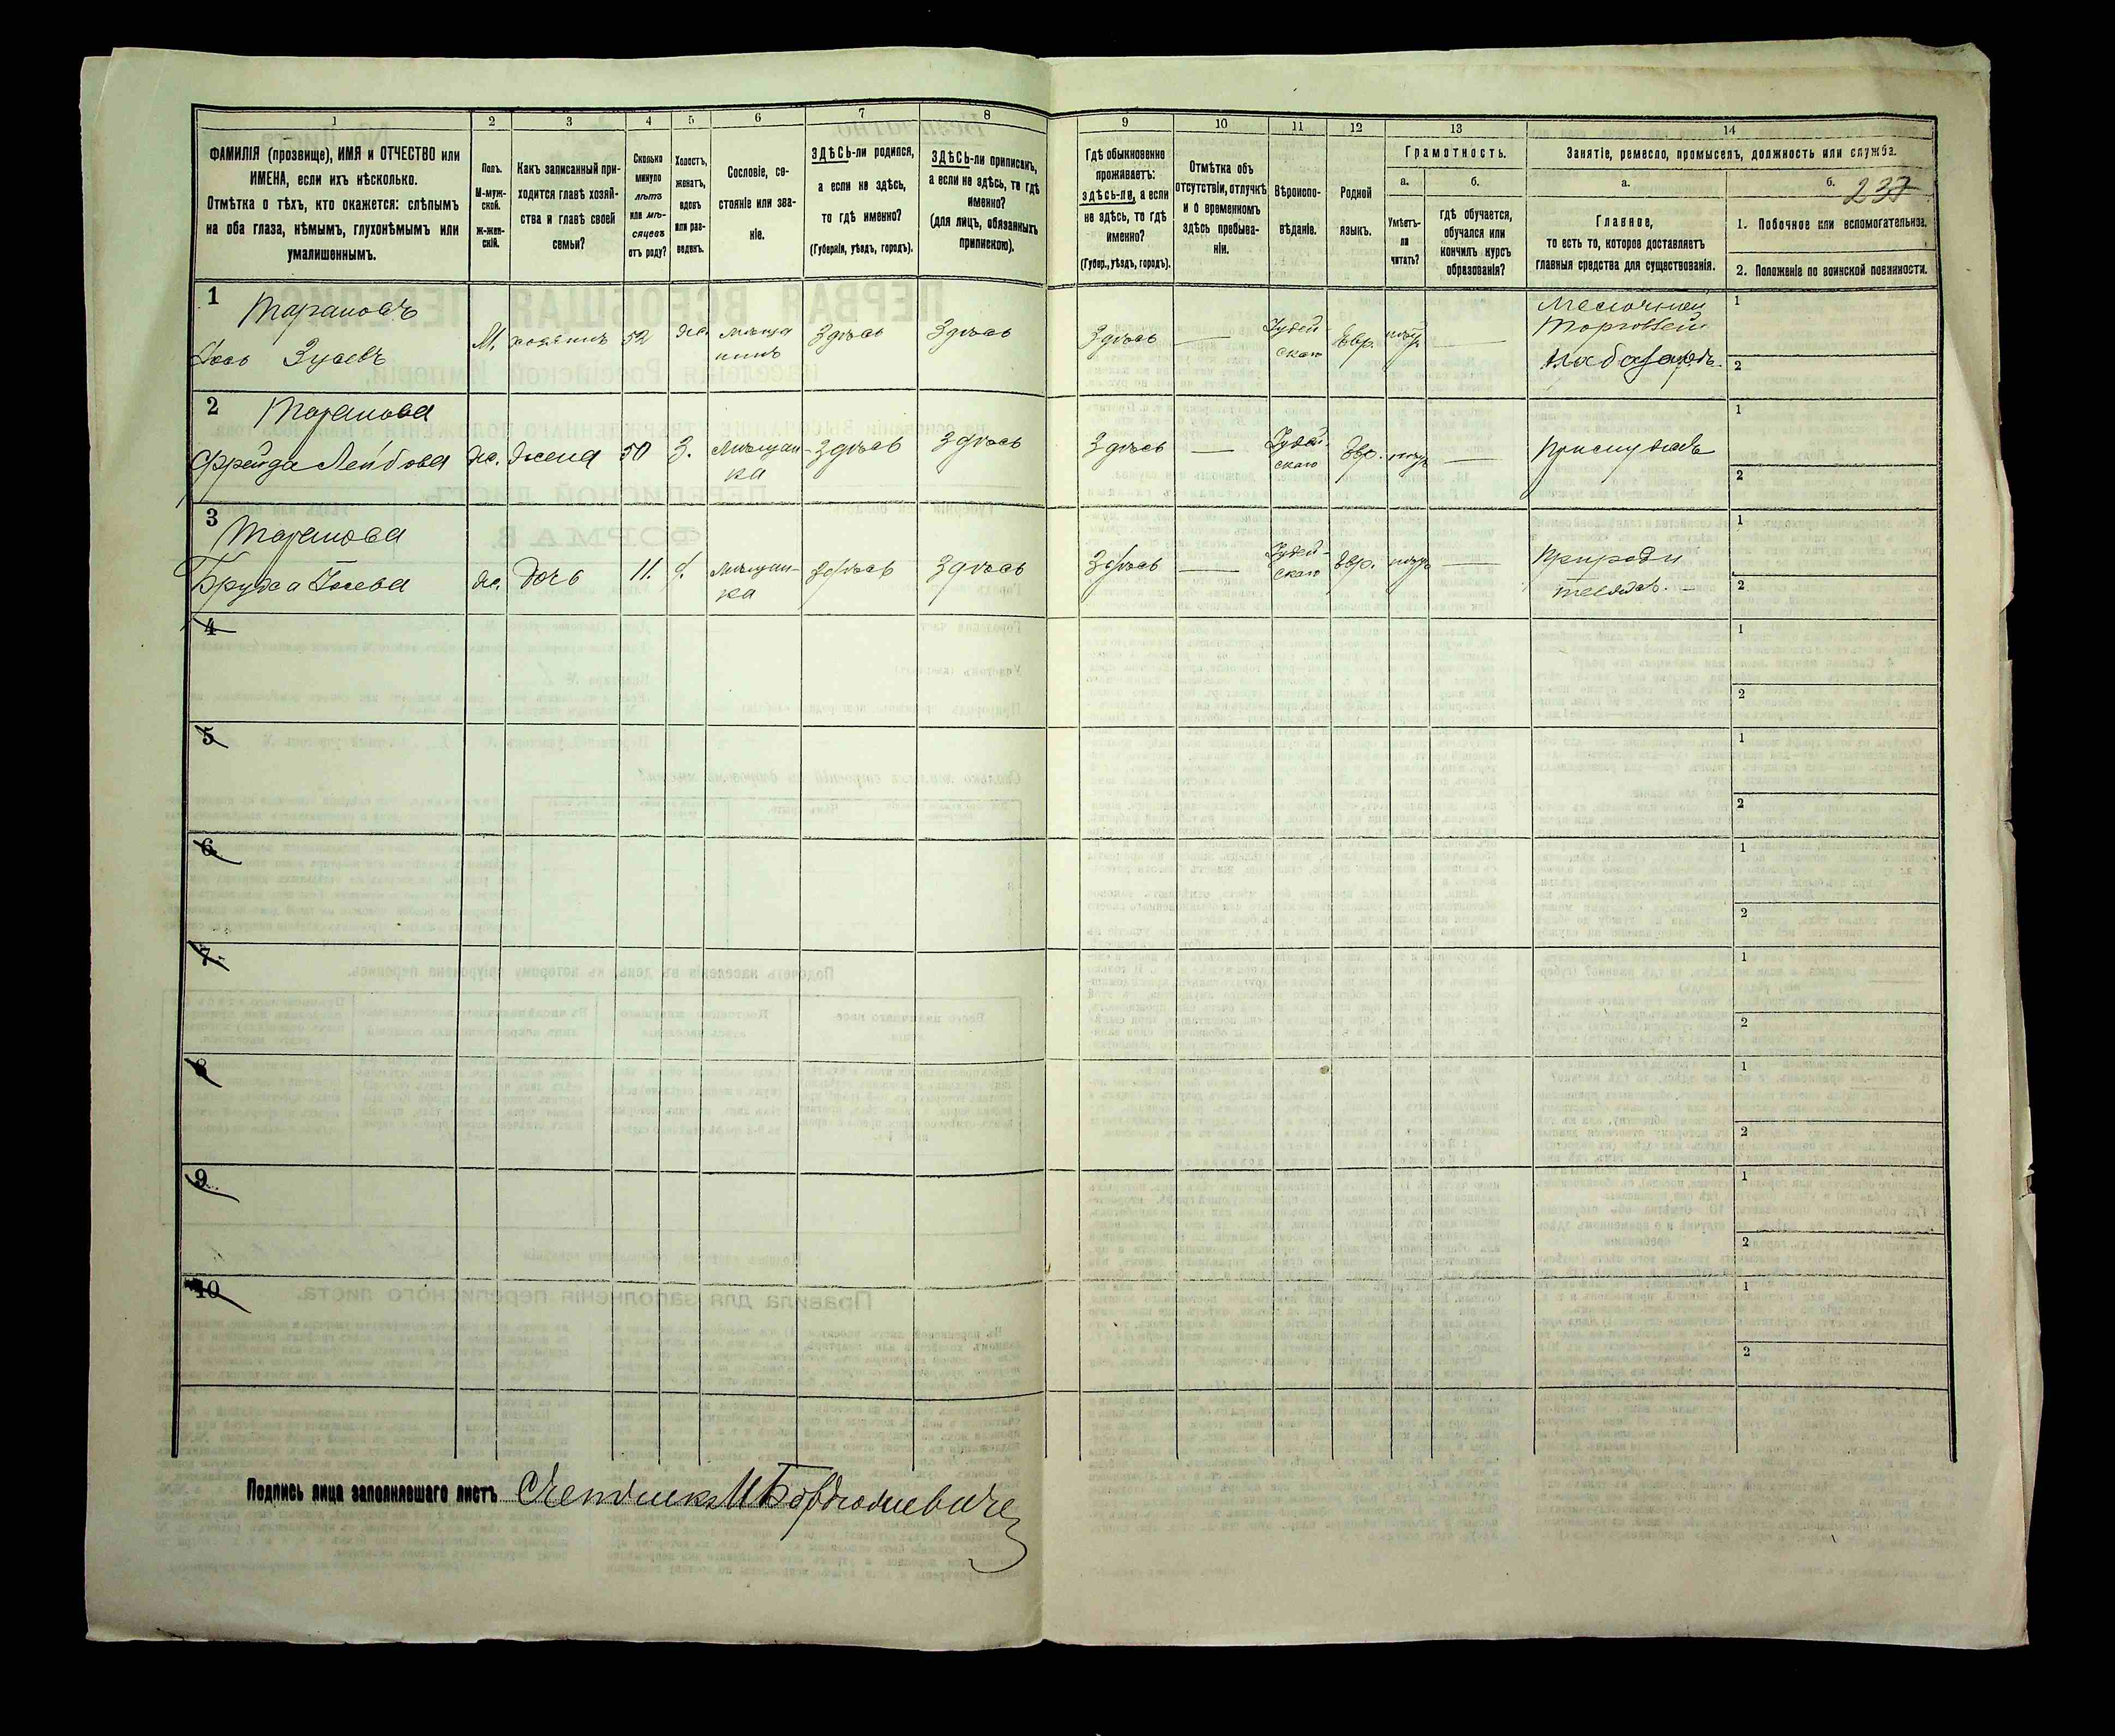 237
1 2 3 4 5 6 7 8 9 10 11 12 13 14
ФАМИЛІЯ (прозвище), ИМЯ и ОТЧЕСТВО или
ИМЕНА, если ихъ нѣсколько.
Отмѣтка о тѣхъ, кто окажется: слѣпымъ
на оба глаза, нѣмымъ, глухонѣмымъ или
умалишеннымъ.
Полъ.
М-муж-
ской.
ж-жен-
скій.
Какъ записанный при-
ходится главѣ хозяй-
ства и главѣ своей
семьи?
Сколько
минуло
лѣтъ
или мѣ-
сяцевъ
отъ роду?
Холостъ,
женатъ,
вдовъ
или раз-
веденъ.
Сословіе, со-
стояніе или зва-
ніе.
ЗДѢСЬ-ли родился,
а если не здѣсь,
то гдѣ именно?
(Губернія, уѣздъ, городъ).
ЗДѢСЬ-ли приписанъ,
а если не здѣсь, то гдѣ
именно?
(для лицъ, обязанныхъ
припискою).
Гдѣ обыкновенно
проживаетъ:
здѣсь-ли, а если
не здѣсь, то гдѣ
именно?
(Губер., уѣздъ, городъ).
Отмѣтка объ
отсутствіи, отлучкѣ
и о временномъ
здѣсь пребыва-
ніи.
Вѣроиспо-
вѣданіе.
Родной
языкъ.
Грамотность.
а.
Умѣетъ-
ли
читать?
б.
гдѣ обучается,
обучался или
кончилъ курсъ
образованія?
Занятіе, ремесло, промыселъ, должность или служба.
а.
Главное,
то есть то, которое доставляетъ
главныя средства для существованія.
б.
1. Побочное или вспомогательное.
2. Положеніе по воинской повинности.
1
Тарановъ
Іось Зусевъ
М. хозяинъ 52 Же. мѣща
нинъ
Здѣсь Здѣсь Здѣсь — Іудей
скаго
Евр. — Мелочной
Торговец
на базарѣ.
1
2
2
Таранова
Фрейда Лейбова Же. Жена 50 З. Мѣщан-
ка
Здѣсь Здѣсь Здѣсь — Іудей-
скаго
Евр. —
1
2
3
Таранова
Іосева Же. Дочь 11. Мѣщан-
ка
Здѣсь Здѣсь Здѣсь — Іудей-
скаго
Евр. — При роди
теляхъ. —
1
2
4
1
2
5
1
2
6
1
2
7
1
2
8
1
2
9
1
2
10
1
2
Подпись лица заполнявшаго листъ Счетчикъ